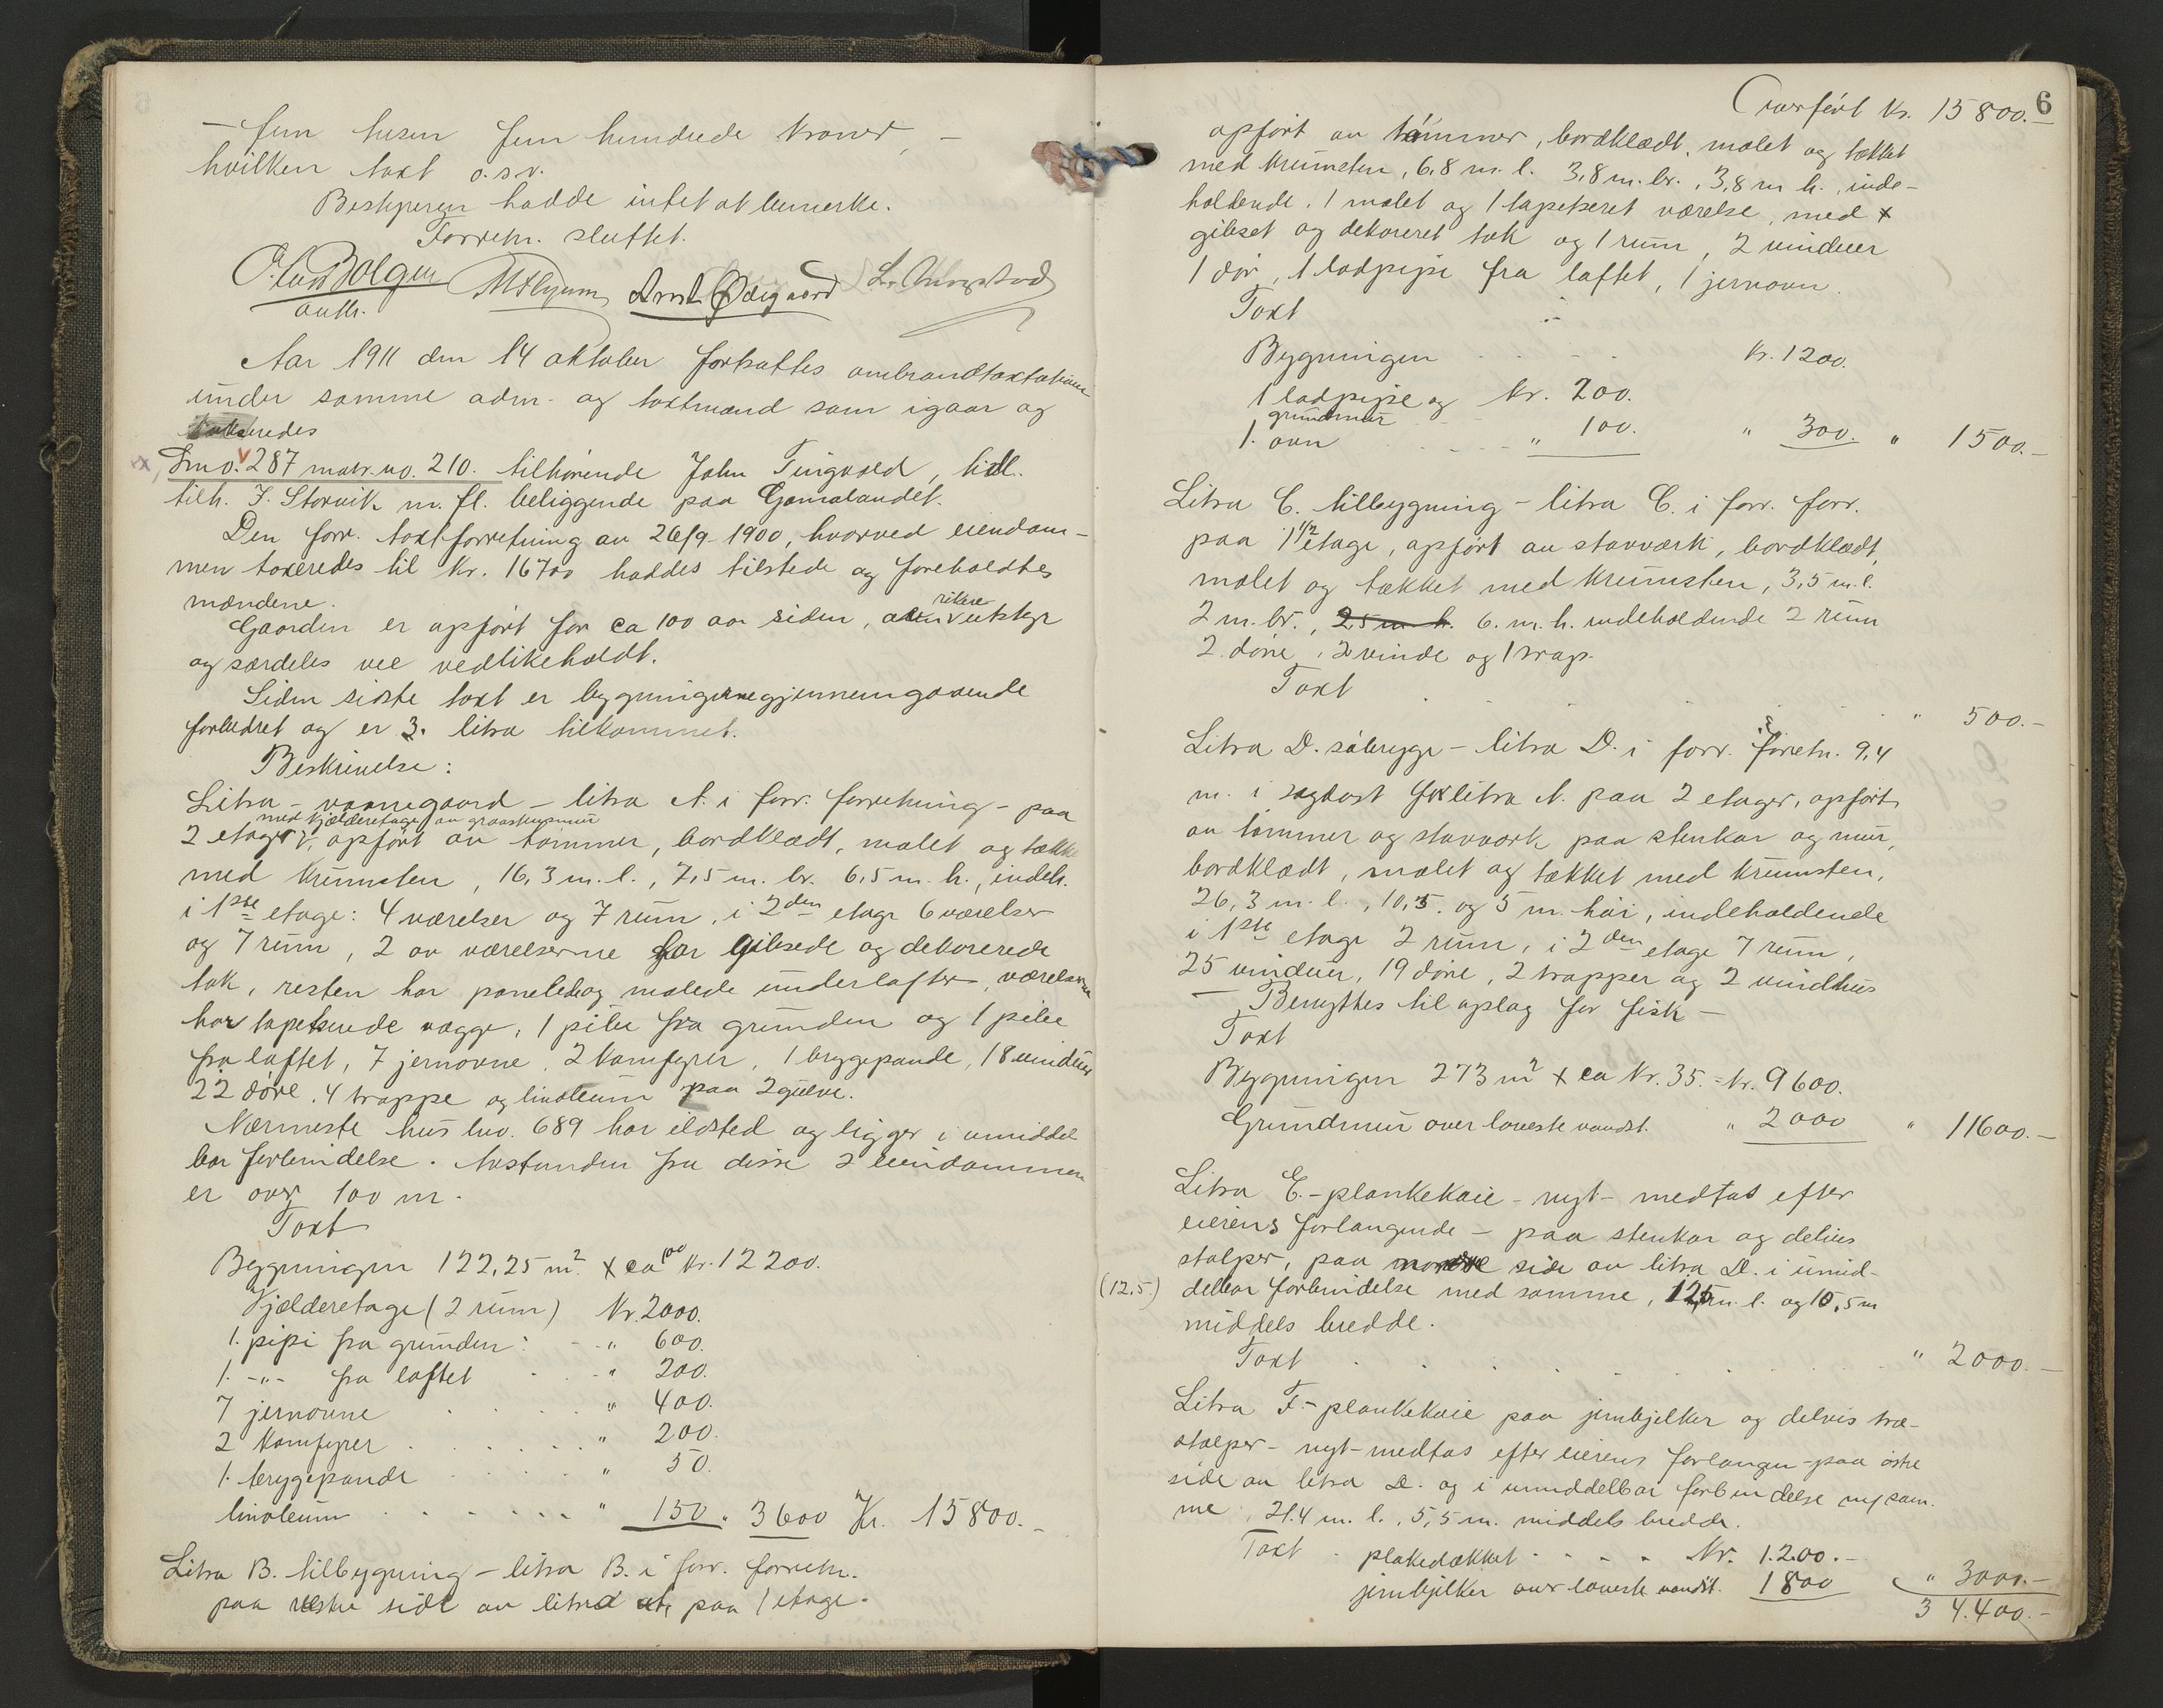 – fem tusen fem hundrede kroner, –
hvilken taxt o.s.v.
Bestyreren hadde intet at bemerke.
Forretn. sluttet.
Olus Bolgen Arnt Ødegaard
Aar 1911 den 14 oktober fortsattes ombrandtaxtationen
under samme adm. og taxtmænd som igaar og
takseredes
Lno. 287 matr. no. 210. tilhørende John Tingvold, tidl.
tilh. J. Storvik m. fl. beliggende paa Gomalandet.
Den forr. taxtforretning av 26/9 1900, hvorved eiendom-
men taxeredes til kr. 16700 haddes tilstede og foreholdtes
mændene.
Gaarden er opført for ca 100 aar siden, utstyr
og særdeles vel vedlikeholdt.
Siden sidste taxt er bygningerne gjennemgaaende
forbedret og er 3. litra tilkommet.
Beskrivelse:
Litra – vaanegaard – litra A. i forr. forretning – paa
med kjælderetage av graastensmur
2 etager, opført av tømmer, bordklædt, malet og tække
med krumsten, 16,3 m. l., 7,5 m. br. 6,5 m. h., indeh.
i 1ste etage: 4 værelser og 7 rum, i 2den etage 6 værelser
og 7 rum, 2 av værelserne har gibsede og dekorerede
tak, resten har panelede og malede underlofter, værelserne
har tapetserede vægge, 1 pibe fra grunden og 1 pibe
fra loftet, 7 jernovne, 2 komfyrer, 1 bryggepande, 18 vinduer
22 døre, 4 trappe og linoleum paa 2 gulve.
Nærmeste hus lno. 689 har ildsted og ligger i umiddel
bar forbindelse. Avstanden fra disse 2 eiendommen
er over 100 m.
Taxt
Bygningen 122,25 m². x ca 100 kr. 12200.
Kjælderetage (2 rum) Kr. 2000.
1. pipe fra grunden: " 600.
1. -"- fra loftet " 200.
7 jernovne " 400.
2 komfyrer " 200.
1. bryggepande " 50.
linoleum " 150 " 3600 Kr. 15800.–
Litra B. tilbygning – litra B. i forr. forretn.
paa vestre side av litra A. paa 1 etage.
6
Overført Kr. 15800.–
opført av tømmer, bordklædt, malet og tækket
med krumsten, 6,8 m. l. 3,8 m. br., 3,8 m h., inde-
holdende. 1 malet og 1 tapetseret værelse, med x
gibset og dekoreret tak og 1 rum, 2 vinduer
1 dør, 1 ladpipe fra loftet, 1 jernovn.
Taxt
Bygningen Kr. 1200.
1 ladpipe og Kr. 200.
grundmur
1. ovn " 100. " 300. " 1500.–
Litra C. tilbygning – litra C. i forr. forr.
paa 1 1/2 etage, opført av stavværk, bordklædt,
malet og tækket med krumsten, 3,5 m. l.
2 m. br., 2,5 m h. 6. m. h. indeholdende 2 rum
2. døre, 2 vinde og 1 trap.
Taxt " 500.–
Litra D. søbrygge – litra D. i forr. forretn. 9,4
m. i sydost for litra A. paa 2 etager, opført
av tømmer og stavværk paa stenkar og mur,
bordklædt, malet og tækket med krumsten,
26,3 m. l., 10,5. og 5 m. høi, indeholdende
i 1ste etage 2 rum, i 2den etage 7 rum,
25 vinduer, 19 døre, 2 trapper og 2 vindhus
– Benyttes til oplag for fisk –
Taxt
Bygningen 273 m² x ca Kr. 35. = Kr. 9600.
Grundmur over laveste vandst. " 2000 " 11600.–
Litra E. – plankekaie – nyt – medtas efter
eierens forlangende – paa stenkar og delvis
stolper, paa nordre side av litra D. i umid-
(12,5.) delbar forbindelse med samme, 12,5 m. l. og 10,5 m
middels bredde.
Taxt " 2000.–
Litra F. – plankekaie paa jernbjelker og delvis træ-
stolper – nyt – medtas efter eierens forlangen – paa østre
side av litra D. og i umiddelbar forbindelse m/ sam-
me, 21.4 m. l., 5,5 m. middels bredde.
Taxt plakedækket Kr. 1.200.–
jernbjelker over laveste vandst. 1800 " 3000.–
34.400.–